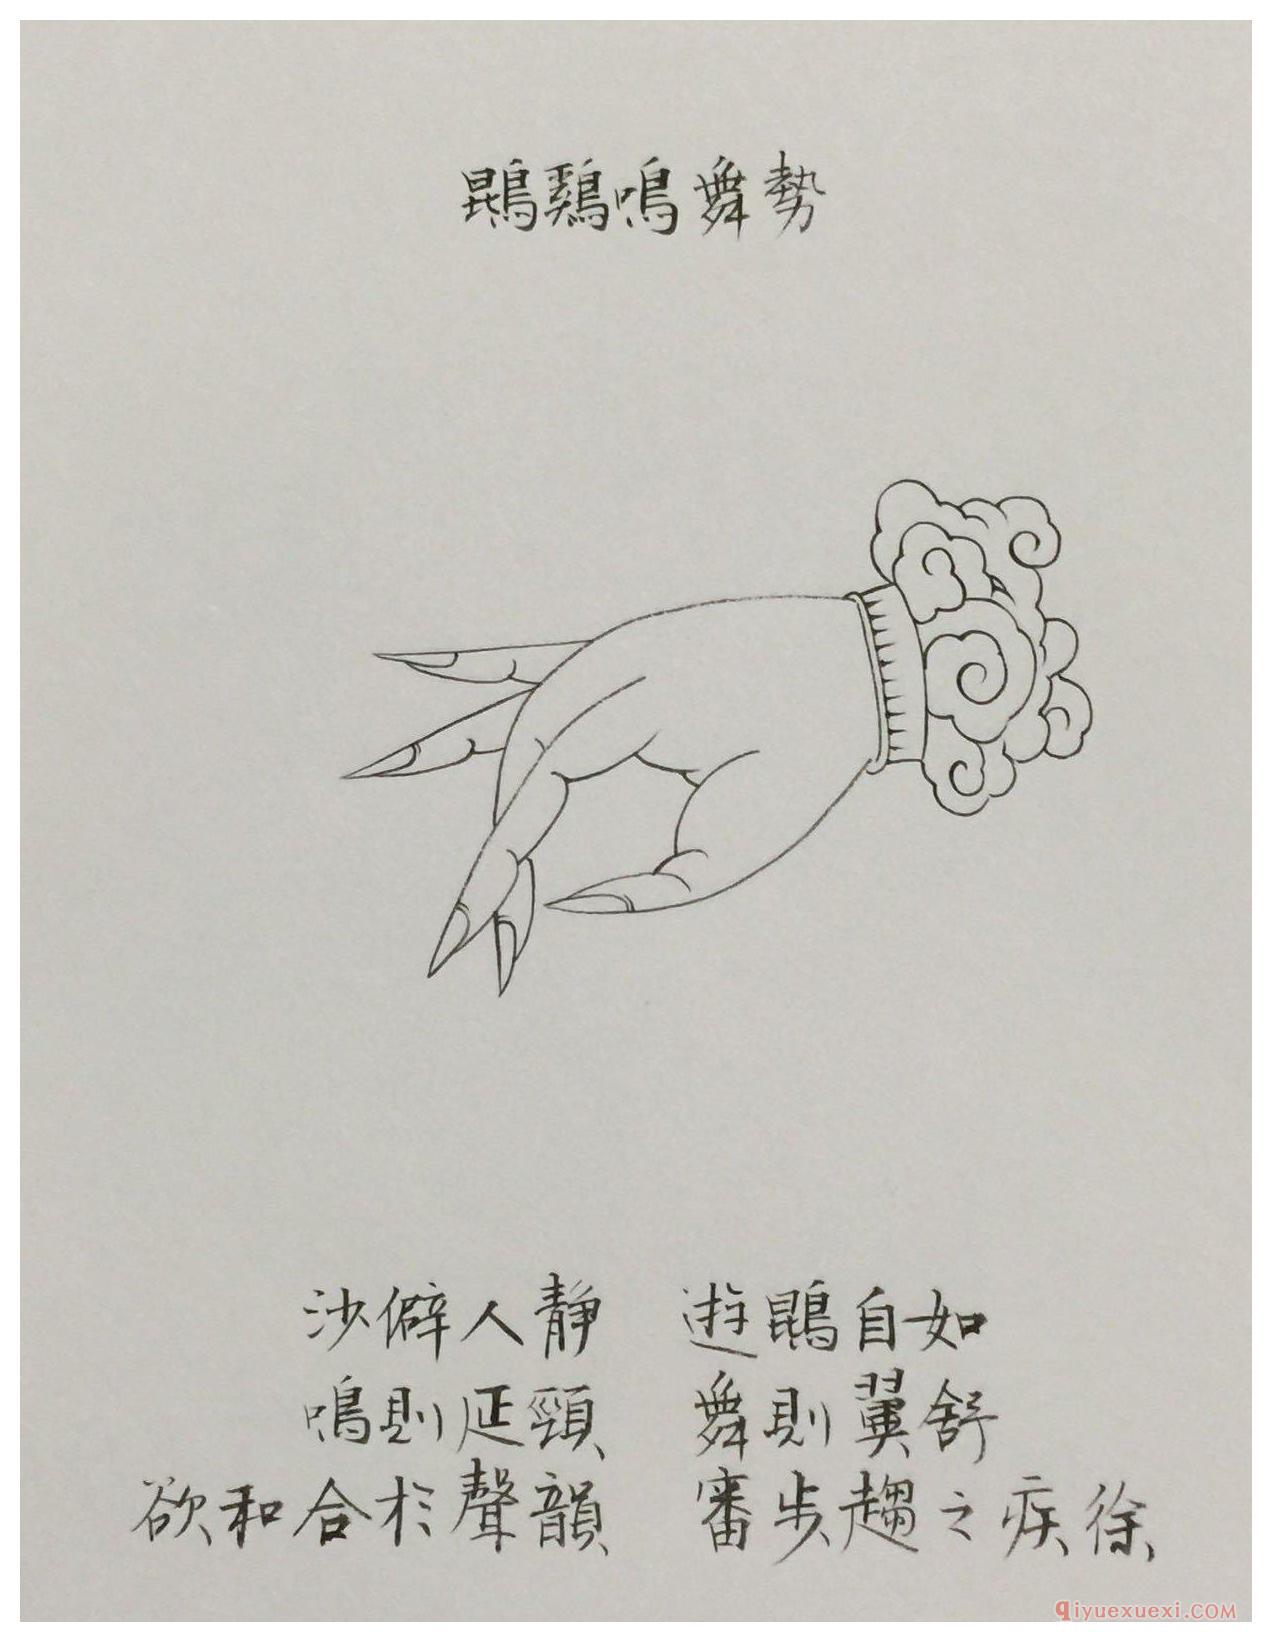 鵾鷄鳴舞勢
沙僻人静 遊鵾自如
鳴則延頸 舞則翼舒
欲和合於聲韻 審步趨之疾徐
qiyuexuexi.COM